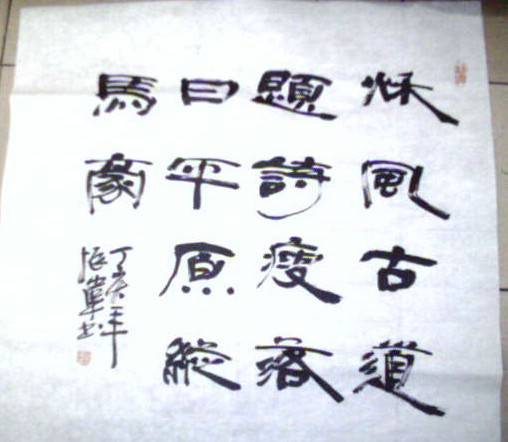 秌風古道
題詩瘦落
日平原縱
馬豪
丁亥年